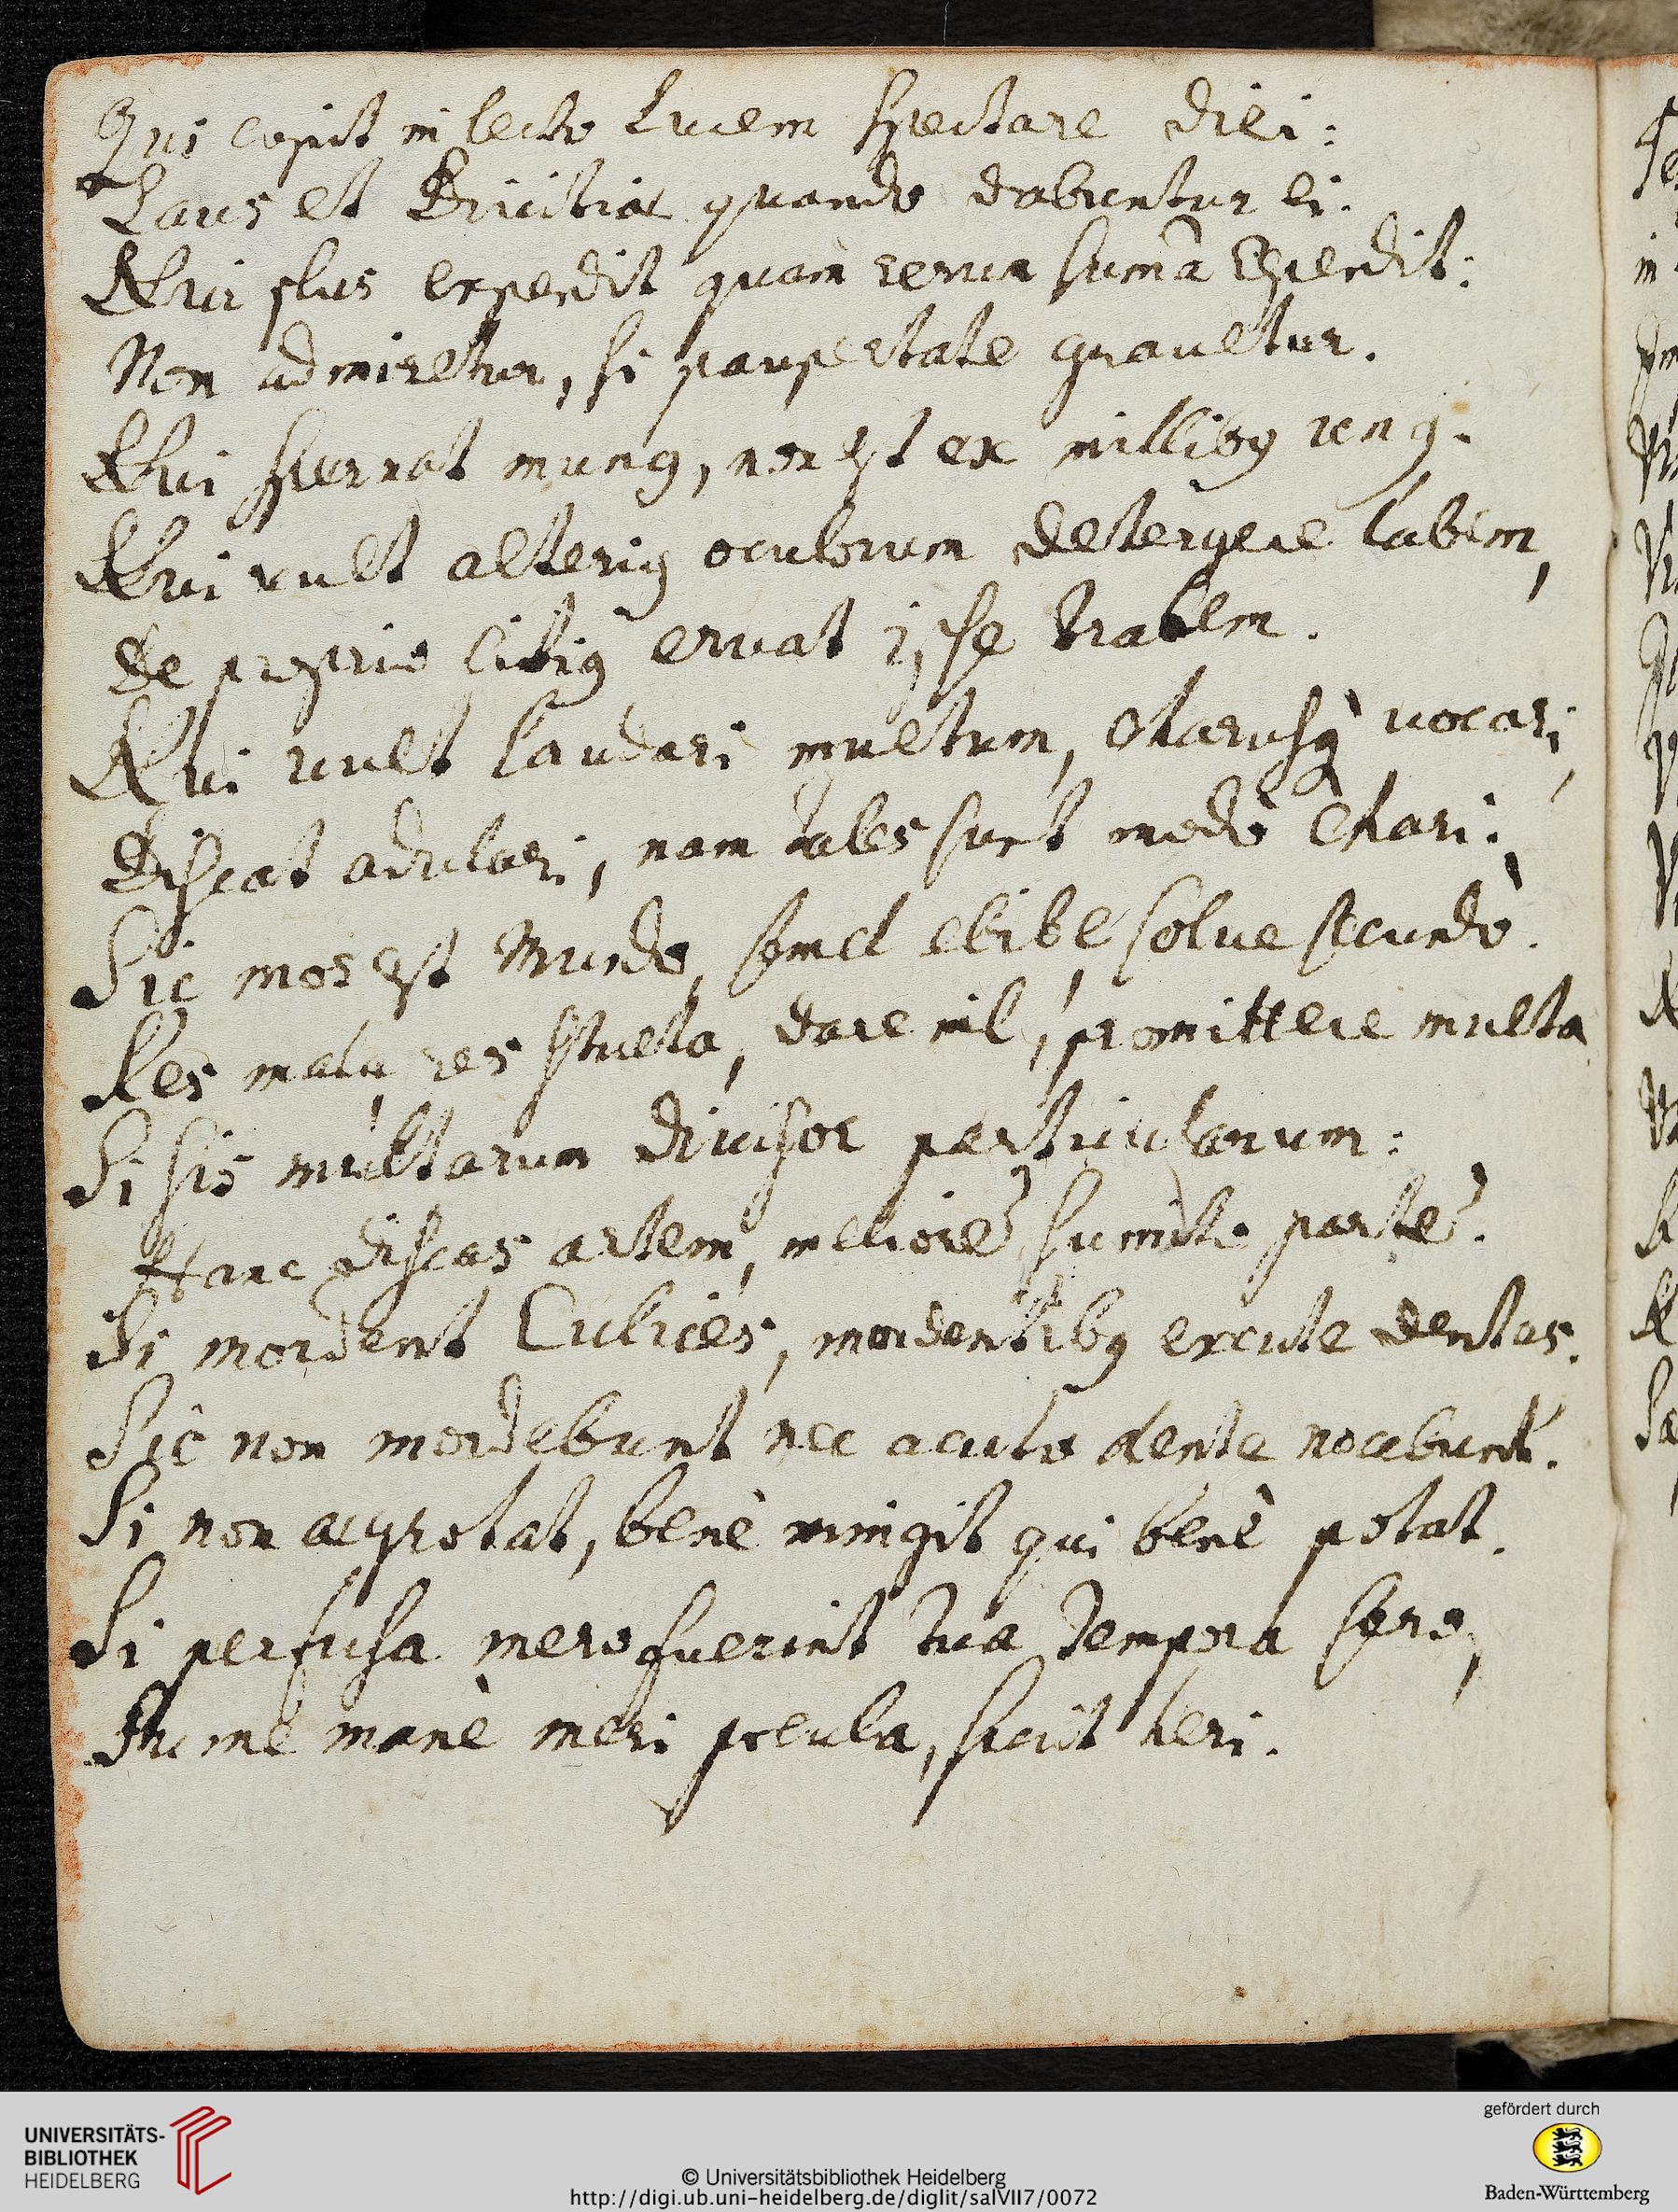 Qui cupit in lecto Lucem spectare diei:
Laus et Divitiæ quando dabuntur ei.
Qui plus expendit quam rerum sum̃a rependit:
Non admiretur, si paupertate gravetur.
Qui spernat munꝰ, non est ex millibꝰ unꝰ.
Qui vult alteriꝰ oculorum detergere labem,
De proprio citiꝰ eruat ipse trabem.
Qui vult laudari multum, charusq̀ vocari,
Discat adulari, nam tales sunt modò chari.
Sic mos est Mundo, semel ebibe, solve secundò.
Res mala, res stulta, dare nil, promittere multa
Si sis multarum divisor particularum:
Hanc discas artem, meliorẽ sumito partẽ.
Si mordent Culices, mordentibꝰ excute dentes.
Sic non mordebunt nec acuto dente nocebunt.
Si non aegrotat, benè mingit qui benè potat.
Si perfusa mero fuerint tua tempora sero,
Sume manè meri pocula, sicut heri.
UNIVERSITÄTS-
BIBLIOTHEK
HEIDELBERG
© Universitätsbibliothek Heidelberg
http://digi.ub.uni-heidelberg.de/diglit/salVII7/0072
gefördert durch
Baden-Württemberg